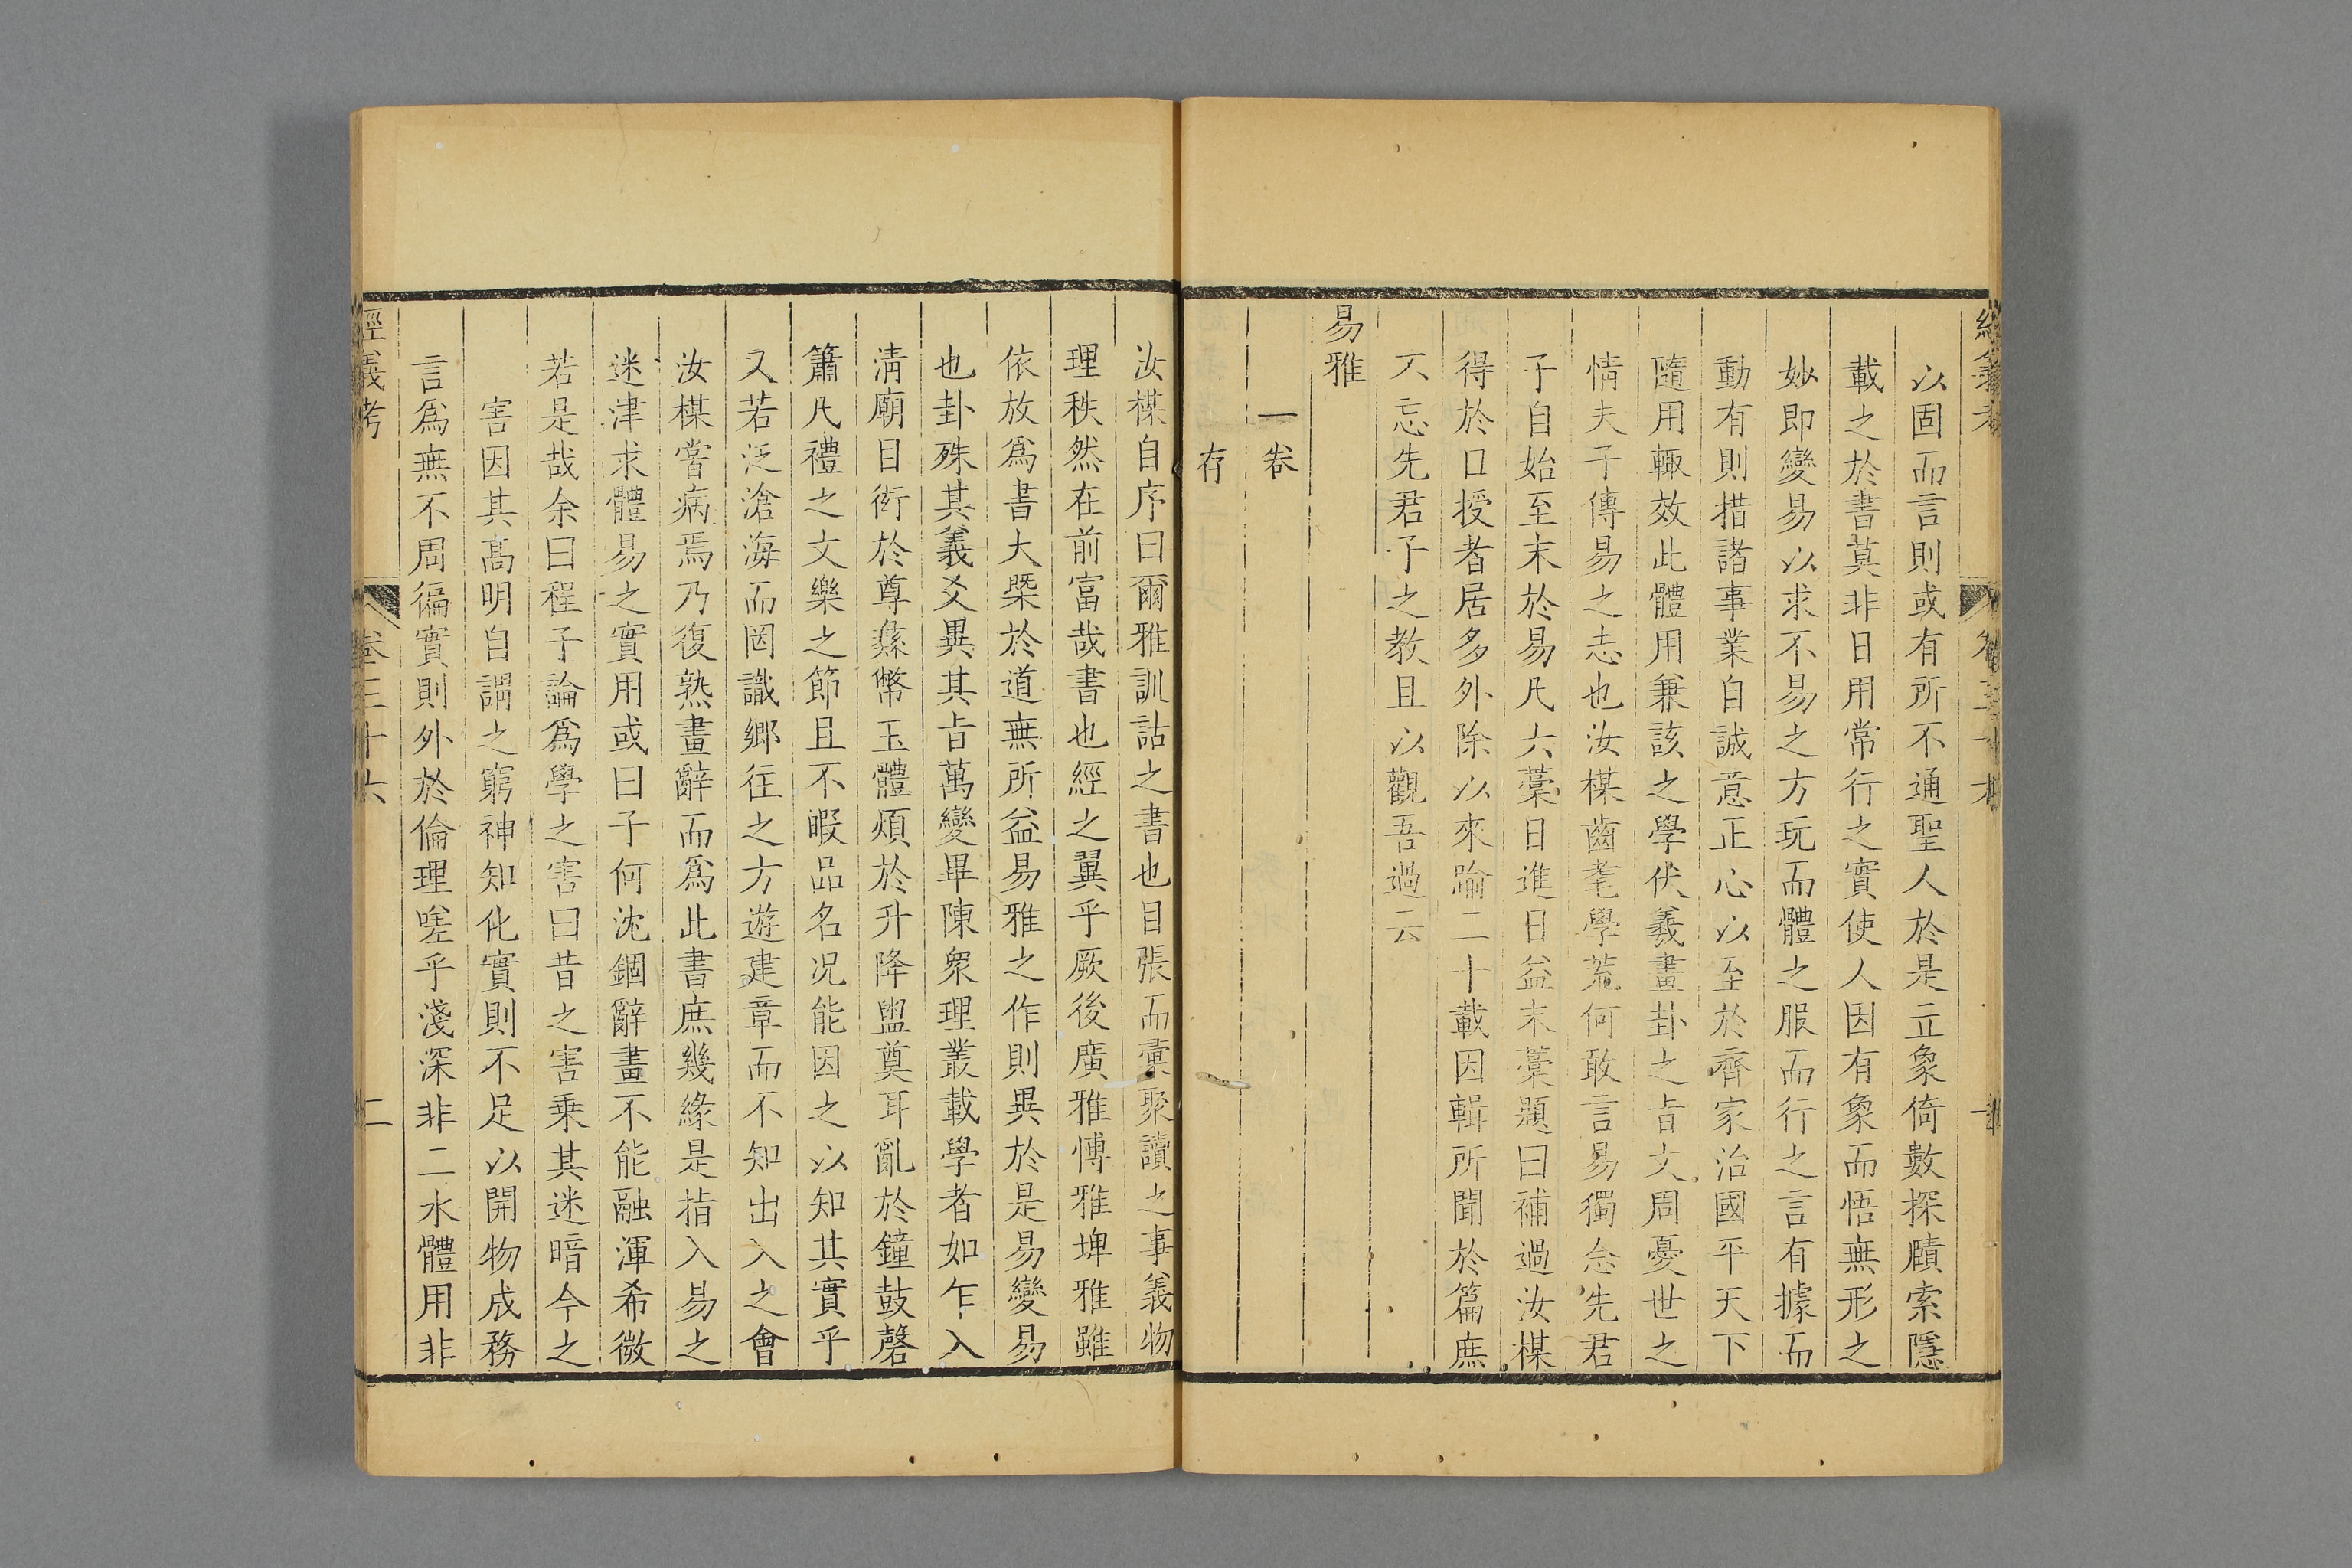 以固而言則或有所不通聖人於是立象倚數探賾索隱
載之於書莫非日用常行之實使人因有象而悟無形之
妙即變易以求不易之方玩而體之服而行之言有據而
動有則措諸事業自誠意正心以至於齊家治國平天下
隨用輒效此體用兼該之學伏羲畫卦之旨文周憂世之
情夫子傳易之志也汝楳齒耄學荒何敢言易獨念先君
子自始至末於易凡六藁日進日益末藁題曰補過汝楳
得於口授者居多外除以來踰二十載因輯所聞於篇庶
不忘先君子之教且以觀吾過云
易雅
一卷
存
汝楳自序曰爾雅訓詁之書也目張而彙聚讀之事義物
理秩然在前富哉書也經之翼乎厥後廣雅博雅埤雅雖
依放爲書大槩於道無所益易雅之作則異於是易變易
也卦殊其義爻異其旨萬變畢陳衆理叢載學者如乍入
淸廟目衒於尊彝幣玉體煩於升降盥奠耳亂於鐘鼓磬
簫凡禮之文樂之節且不暇品名况能因之以知其實乎
又若泛滄海而罔識鄉往之方遊建章而不知出入之會
汝楳嘗病焉乃復熟畫辭而爲此書庶幾緣是指入易之
迷津求體易之實用或曰子何沈錮辭畫不能融渾希微
若是哉余曰程子論爲學之害曰昔之害乘其迷暗今之
害因其高明自謂之窮神知化實則不足以開物成務
言爲無不周徧實則外於倫理嗟乎淺深非二水體用非
經義考
卷三十六
二